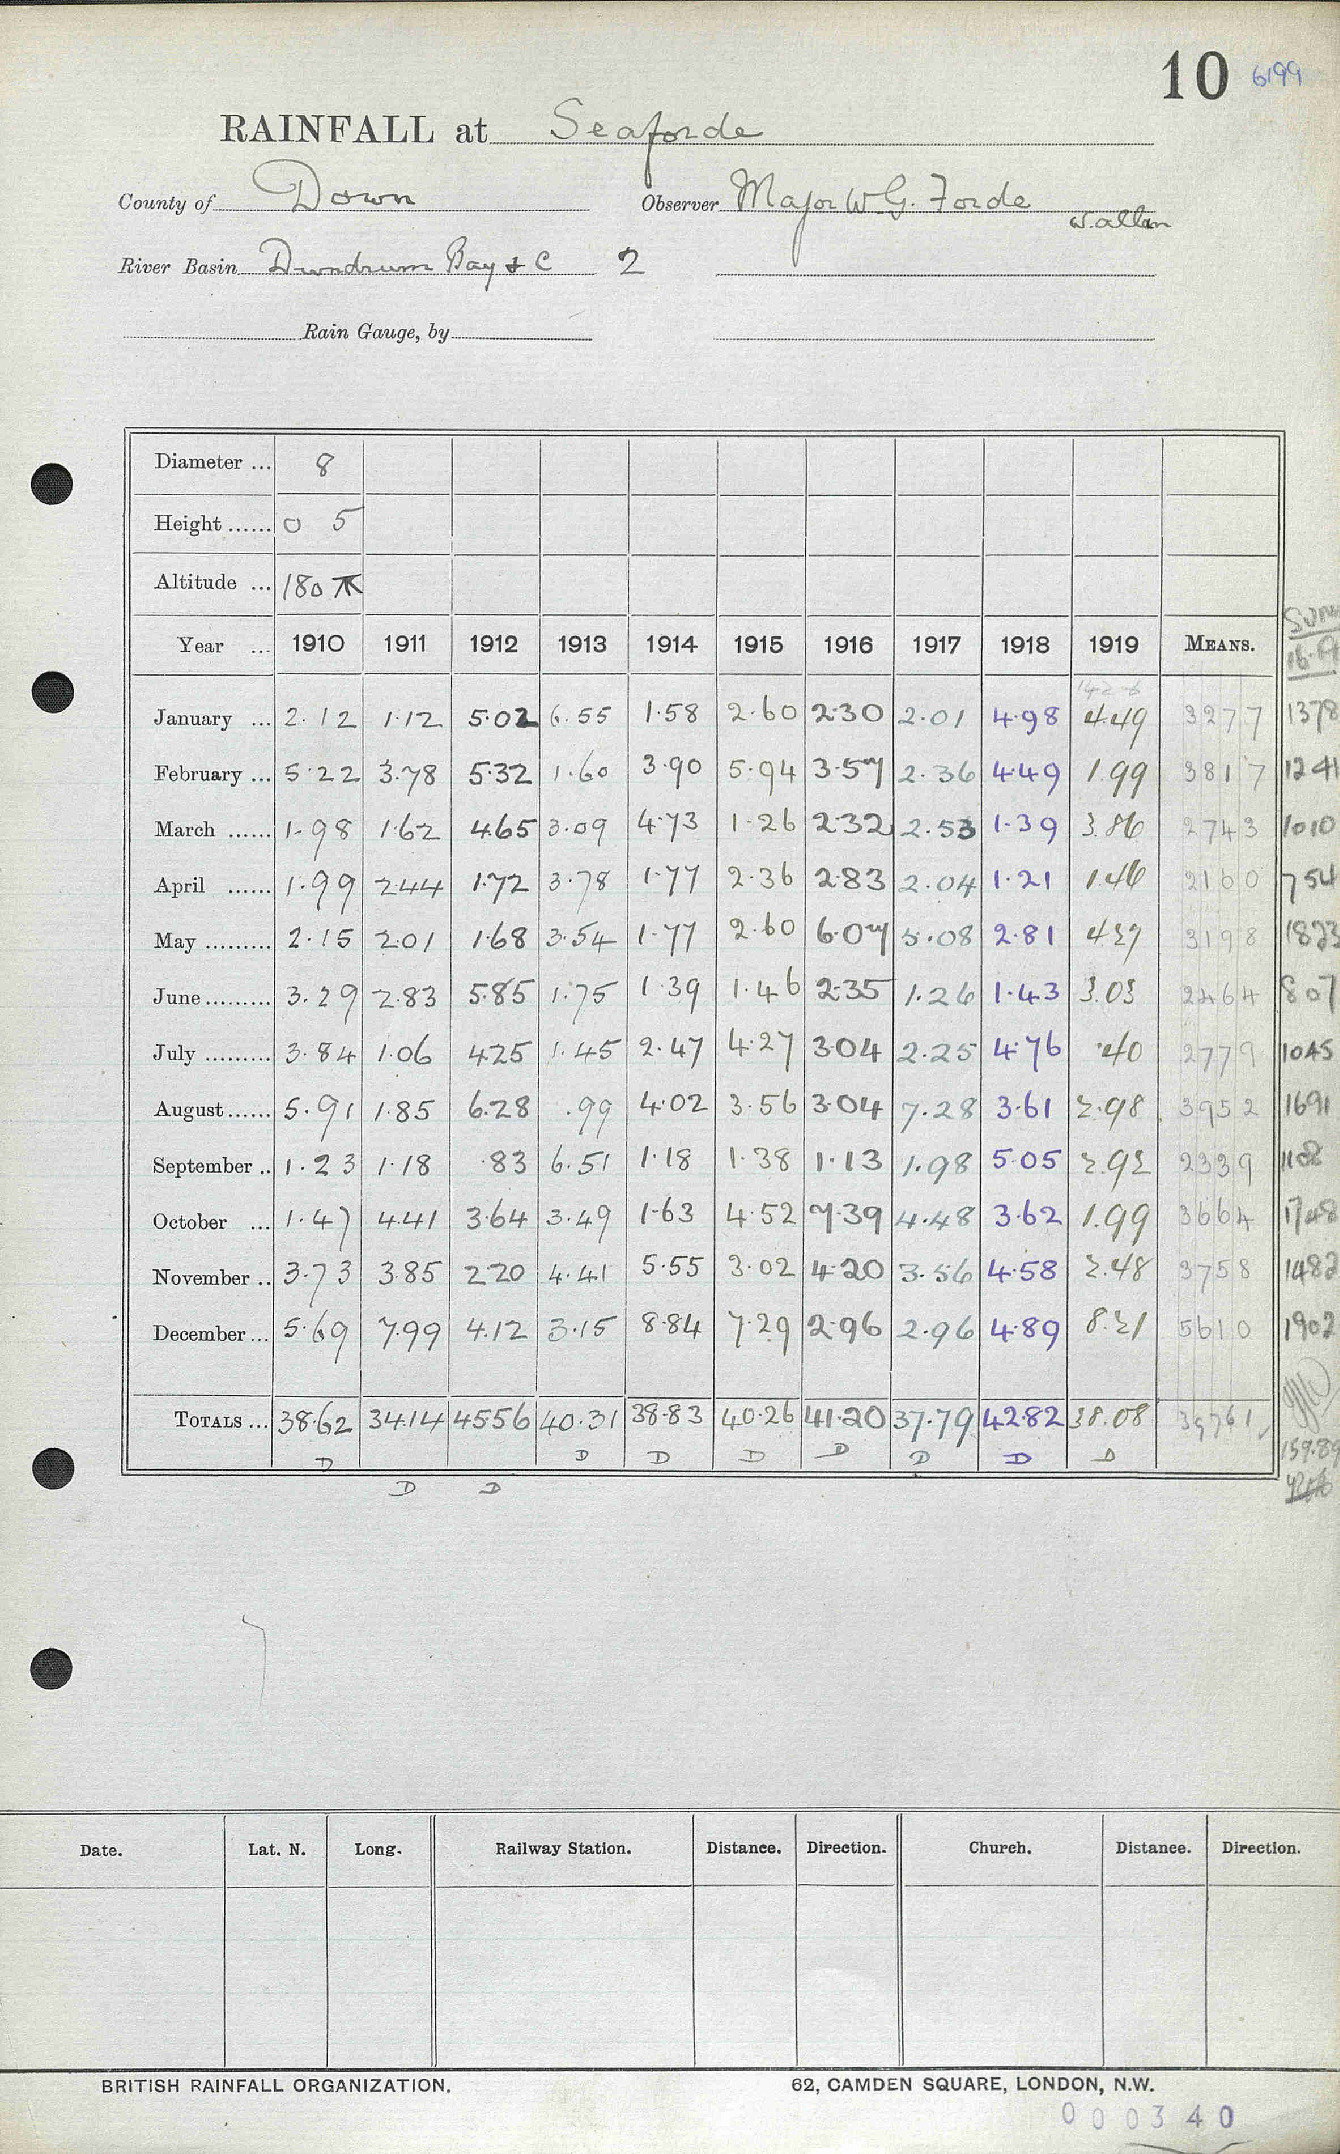 10 6199
RAINFALL at Seaforde
County of Down Observer Major W G. Forde
W. Allen
River Basin Dundrum Bay & C 2
Rain Gauge, by
Diameter ... 8
Height ...... 0 5
Altitude ... 180
Year ... 1910 1911 1912 1913 1914 1915 1916 1917 1918 1919 MEANS.
January ... 2.12 1.12 5.02 6.55 1.58 2.60 2.30 2.01 4.98 4.49 3277 1378
February ... 5.22 3.78 5.32 1.60 3.90 5.94 3.57 2.36 4.49 1.99 3817 1241
March ...... 1.98 1.62 4.65 3.09 4.73 1.26 2.32 2.53 1.39 3.86 2743 1010
April ...... 1.99 2.44 1.72 3.78 1.77 2.36 2.83 2.04 1.21 1.46 2160 754
May ......... 2.15 2.01 1.68 3.54 1.77 2.60 6.07 5.08 2.81 4.27 3198 1823
June ......... 3.29 2.83 5.85 1.75 1.39 1.46 2.35 1.26 1.43 3.03 2464 807
July ......... 3.84 1.06 4.25 1.45 2.47 4.27 3.04 2.25 4.76 .40 2779 1045
August ...... 5.91 1.85 6.28 .99 4.02 3.56 3.04 7.28 3.61 2.98 3952 1691
September .. 1.23 1.18 .83 6.51 1.18 1.38 1.13 1.98 5.05 2.92 2339 1108
October ... 1.47 4.41 3.64 3.49 1.63 4.52 7.39 4.48 3.62 1.99 3664 1748
November .. 3.73 3.85 2.20 4.41 5.55 3.02 4.20 3.56 4.58 2.48 3758 1482
December ... 5.69 7.99 4.12 3.15 8.84 7.29 2.96 2.96 4.89 8.21 5610 1902
TOTALS ... 38.62 34.14 45.56 40.31 38.83 40.26 41.20 37.79 42.82 38.08 39761
D D D D D D D D 159.89
D D
Date. Lat. N. Long. Railway Station. Distance. Direction. Church. Distance. Direction.
BRITISH RAINFALL ORGANIZATION. 62, CAMDEN SQUARE, LONDON, N.W.
000340